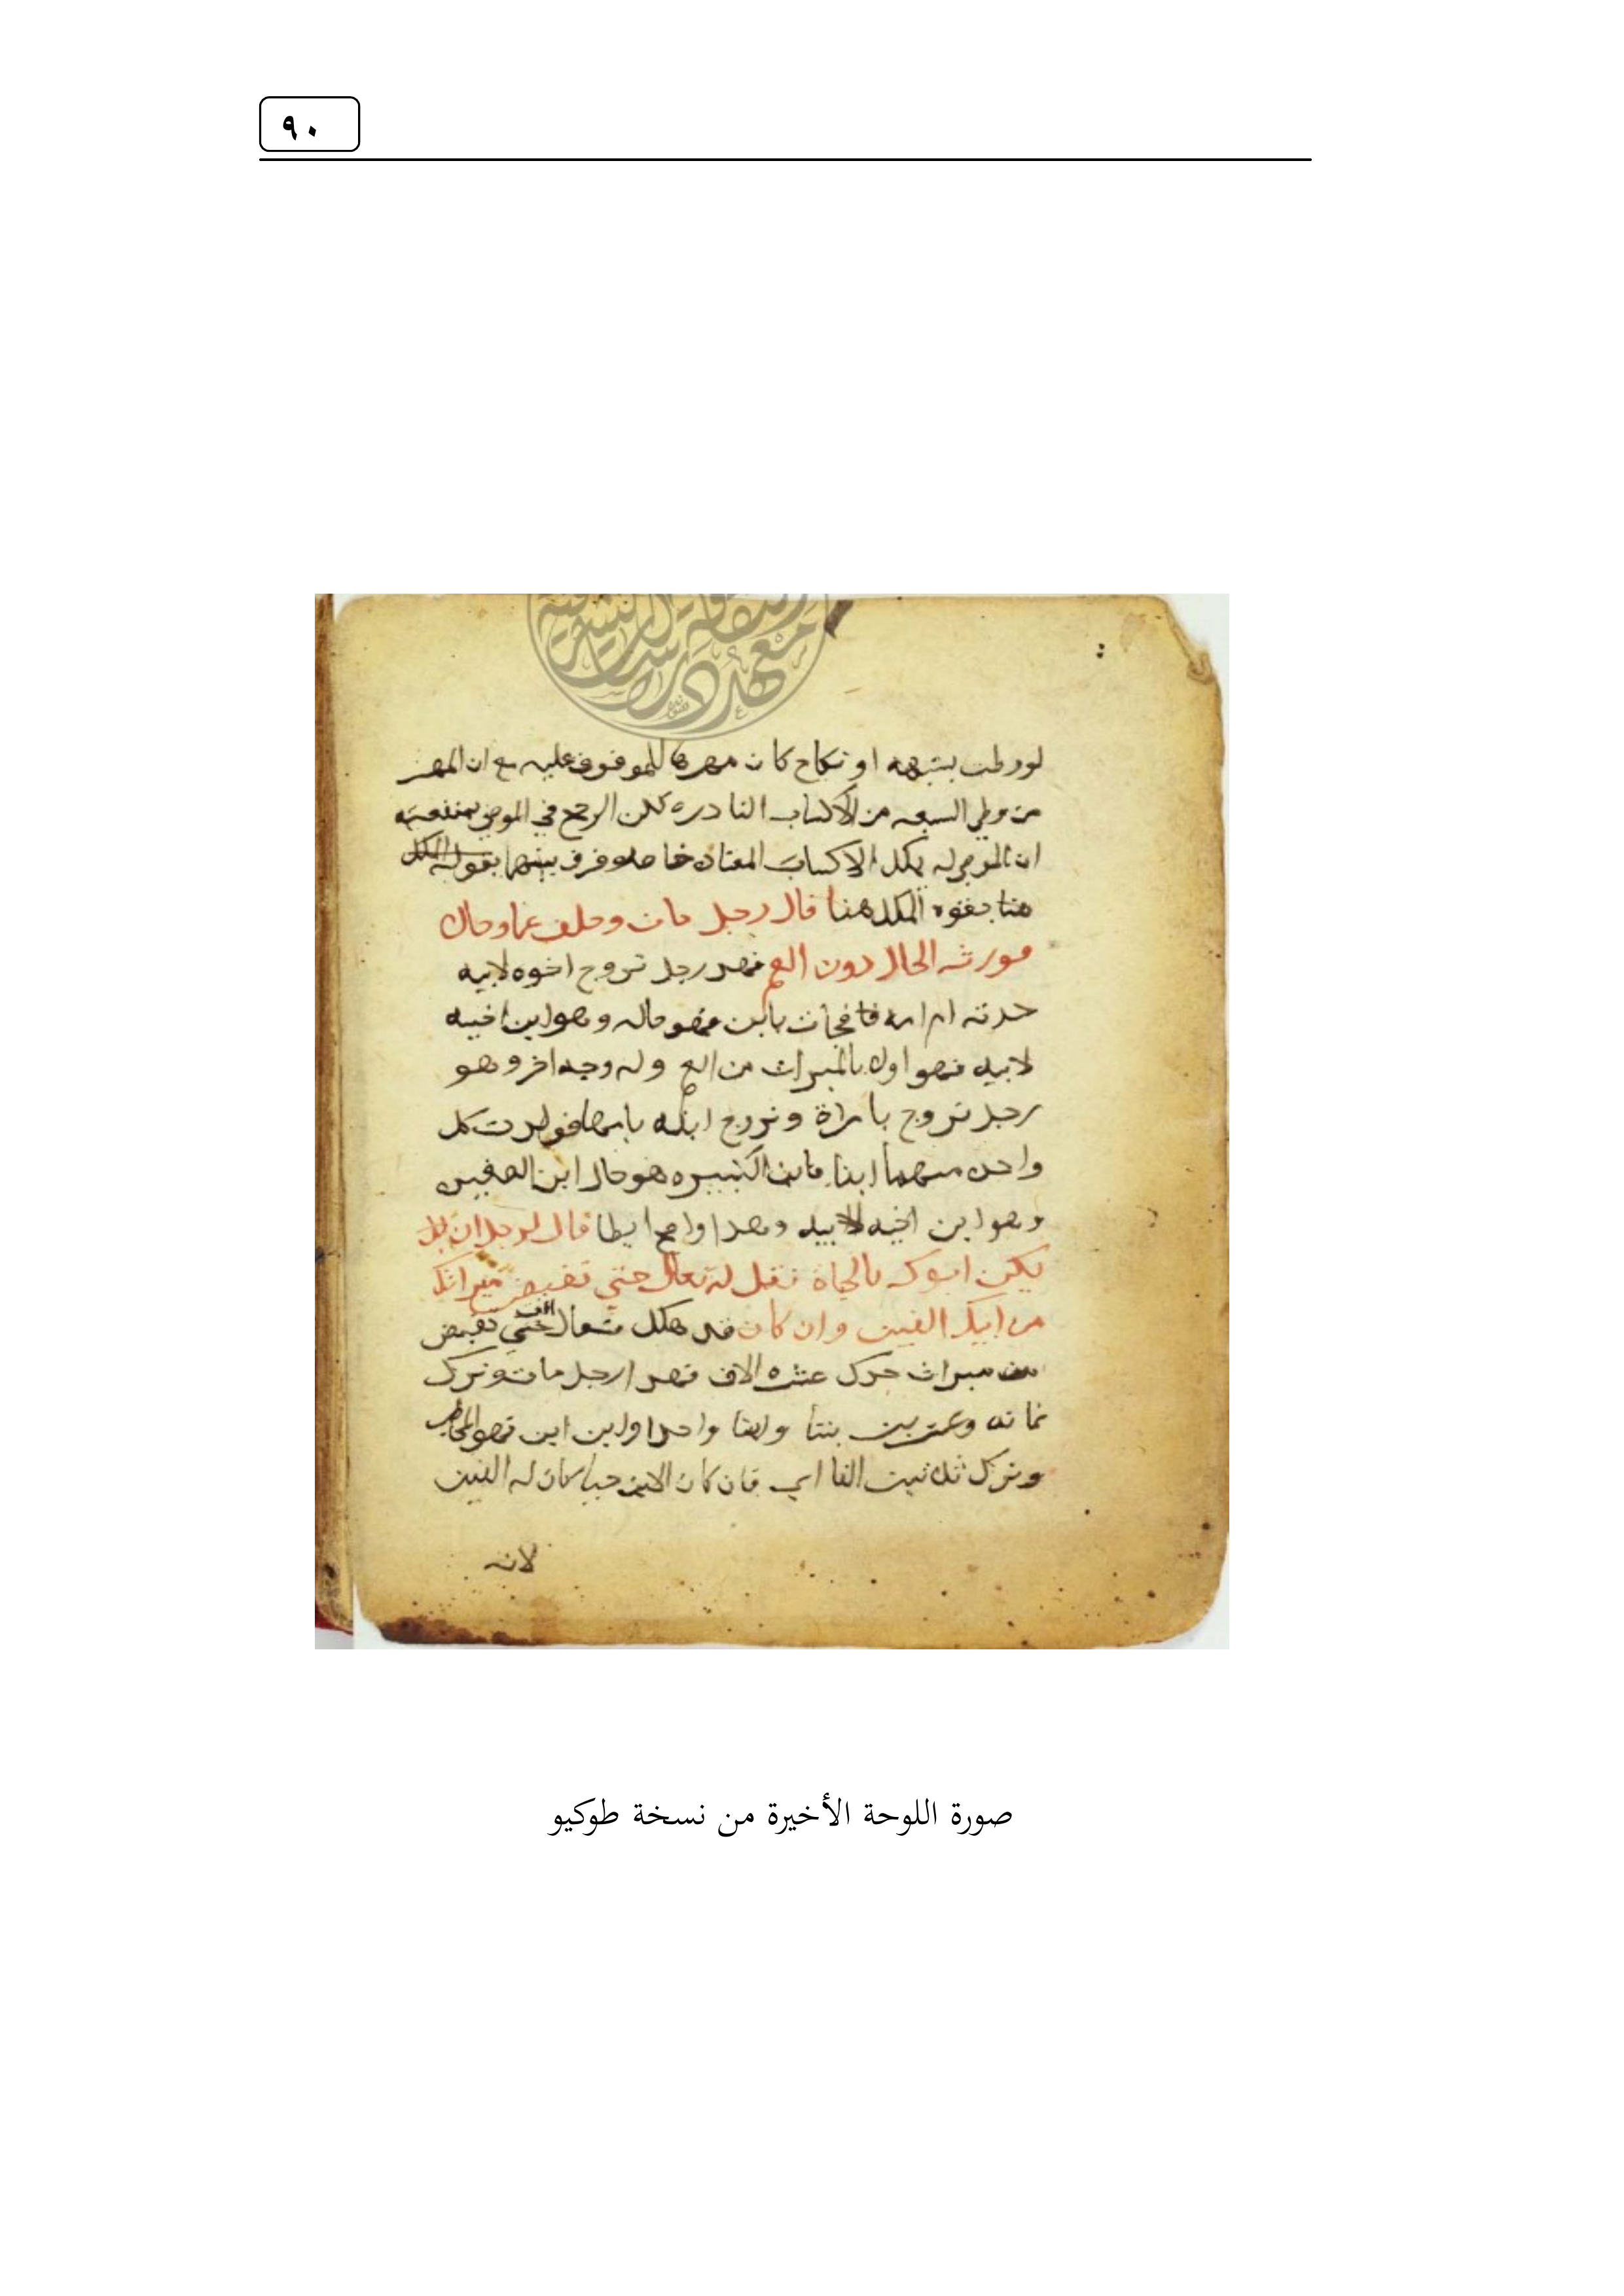 ٩٠
لو وطئت بشبهه او نكاح كان مهرها للموقوف عليه مع ان المهر
من وطي الشبهه من الاكساب النادره لكن الرجح في الموصى بمنفعته
ان الموصى له يملك الاكساب المعتاده خاصه وفرق بينهما بقوله الملك
هنا بقوه الملك هنا قال رجل مات وخلف عما وخال
فورثه الخال دون العم فهذ رجل تزوج اخوه لابيه
جدته ام امه فجأت بابن فهو خاله وهو ابن اخيه
لابيه فهو اولى بالميراث من العم وله وجه اخر وهو
رجل تزوج بامراة وتزوج ابنه بامها فولدت كل
واحده منهما ابنا فابن الكبيره هو خال ابن الصغيره
وهو ابن اخيه لابيه وهذا واضح ايظا قال لرجل ان
يكن ابوك بالحياة فقل له تعال حتى تقبض ميراثك
من ابيك الفين وان كان قد هلك فتعال انت حتى تقبض
من ميراث جدك عشره الاف فهذ ارجل مات وترك
ثمانه وعشرين بنتا وابنا واحدا وابن ابن فهو المخاطب
وترك ثلاثين الفا اي فان كان الابن حيا كان له الفين
لانه
صورة اللوحة الأخيرة من نسخة طوكيو